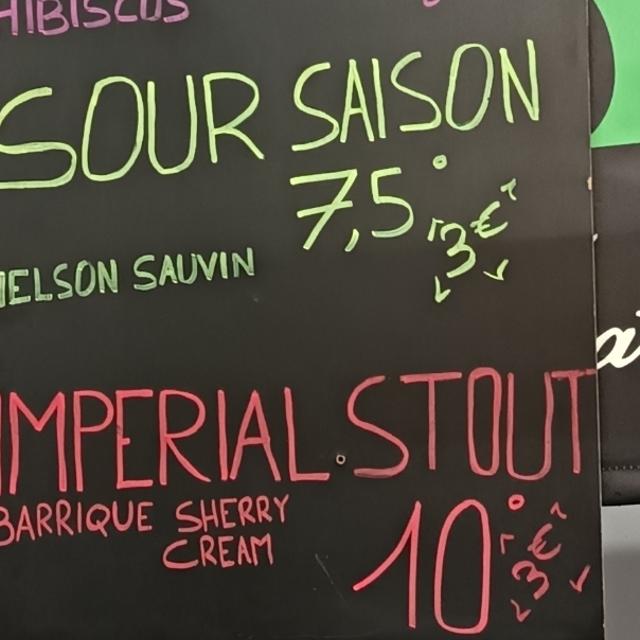 HIBISCUS
SOUR SAISON
7,5° 3€
NELSON SAUVIN
IMPERIAL STOUT
BARRIQUE SHERRY
CREAM
10° 3€